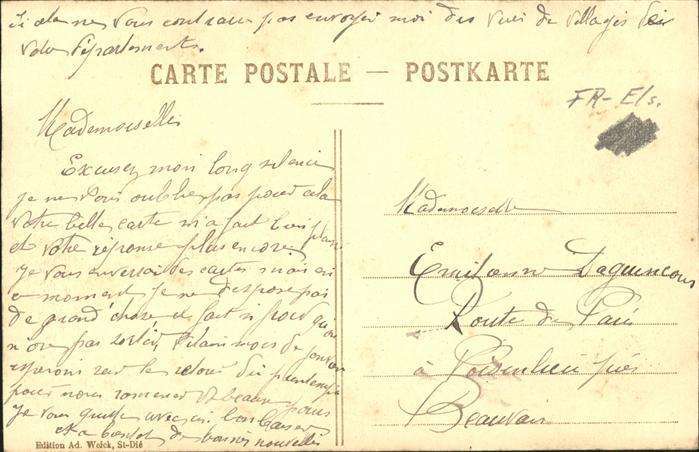 si cela ne vous contrarie pas envoyez moi des vues de villages de
votre département.
CARTE POSTALE — POSTKARTE
FR-Els.
Mademoiselle
Excusez mon long silence
je ne vous oublie pas pour cela
votre belle carte m'a fait bien plaisir
et votre réponse plus encore
je vous enverrai des cartes mais en
ce moment je ne dispose pas
de grand chose il fait si froid qu'on
n'ose pas sortir
le retour du printemps
pour nous ramener de beaux jours
je vous quitte avec un bon baiser
et a bientôt de bonnes nouvelles
Edition Ad. Weick, St-Dié
Mademoiselle
Daguencour
Route de Paris
à près
Beauvais